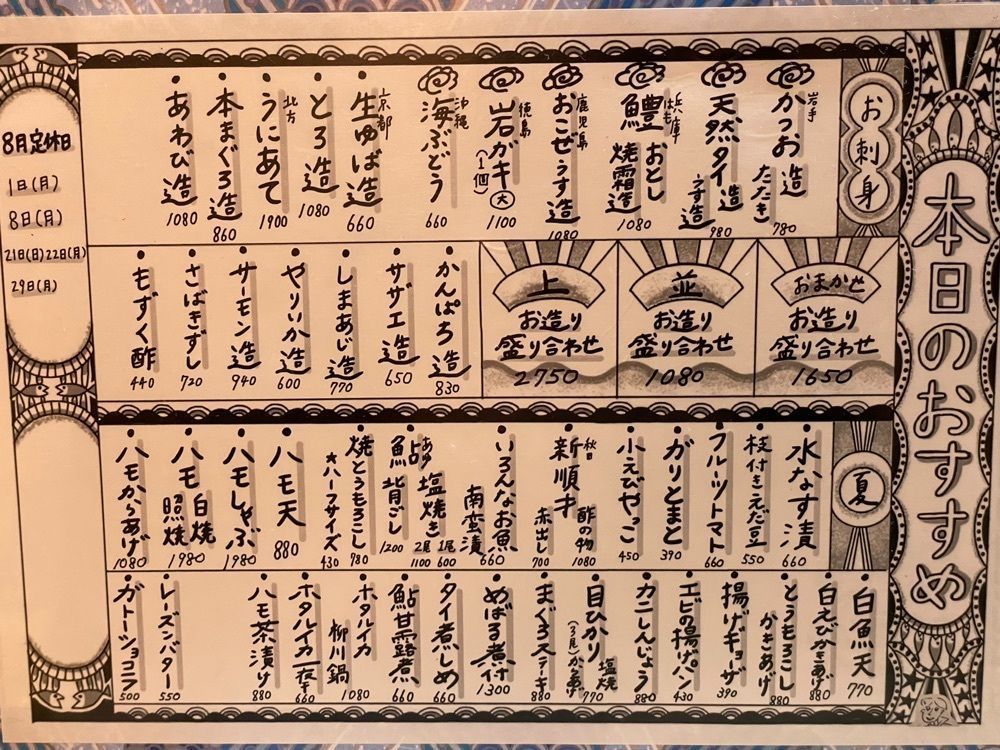 本日のおすすめ
お刺身
岩手 かつお造 (たたき) 780
天然タイ うす造 980
兵庫 はも 鱧おとし 焼霜造 1080
鹿児島 おこぜうす造 1080
徳島 岩ガキ 大 (1個) 1100
沖縄 海ぶどう 660
京都 生ゆば造 660
とろ造 1080
北方 うにあて 1900
本まぐろ造 860
あわび造 1080
おまかせ お造り 盛り合わせ 1650
並 お造り 盛り合わせ 1080
上 お造り 盛り合わせ 2750
かんぱち造 830
サザエ造 650
しまあじ造 770
やりいか造 600
サーモン造 940
さばきずし 720
もずく酢 440
夏
水なす漬 660
枝付きえだ豆 550
フルーツトマト 660
がりとまと 390
小えびやっこ 450
秋田 新順才 酢の物 1080 赤出し 700
いろんなお魚 南蛮漬 660
あゆ 鮎 塩焼き 1尾 600 2尾 1100 背ごし 1200
焼とうもろこし 780 *ハーフサイズ 430
ハモ天 880
ハモしゃぶ 1980
ハモ 白焼 照焼 1980
ハモからあげ 1080
白魚天 770
白えびかきあげ 880
とうもろこし かきあげ 880
揚げギョーザ 390
エビの揚げパン 430
カニしんじょう 880
目ひかり 塩焼 (3尾)から揚げ 770
まぐろステーキ 880
めばる煮付 1300
タイ煮しめ 660
鮎甘露煮 660
ホタルイカ 柳川鍋 1080
ホタルイカ一夜干 660
ハモ茶漬け 880
レーズンバター 550
ガトーショコラ 500
8月定休日
1日(月)
8日(月)
21日(日)22日(月)
29日(月)